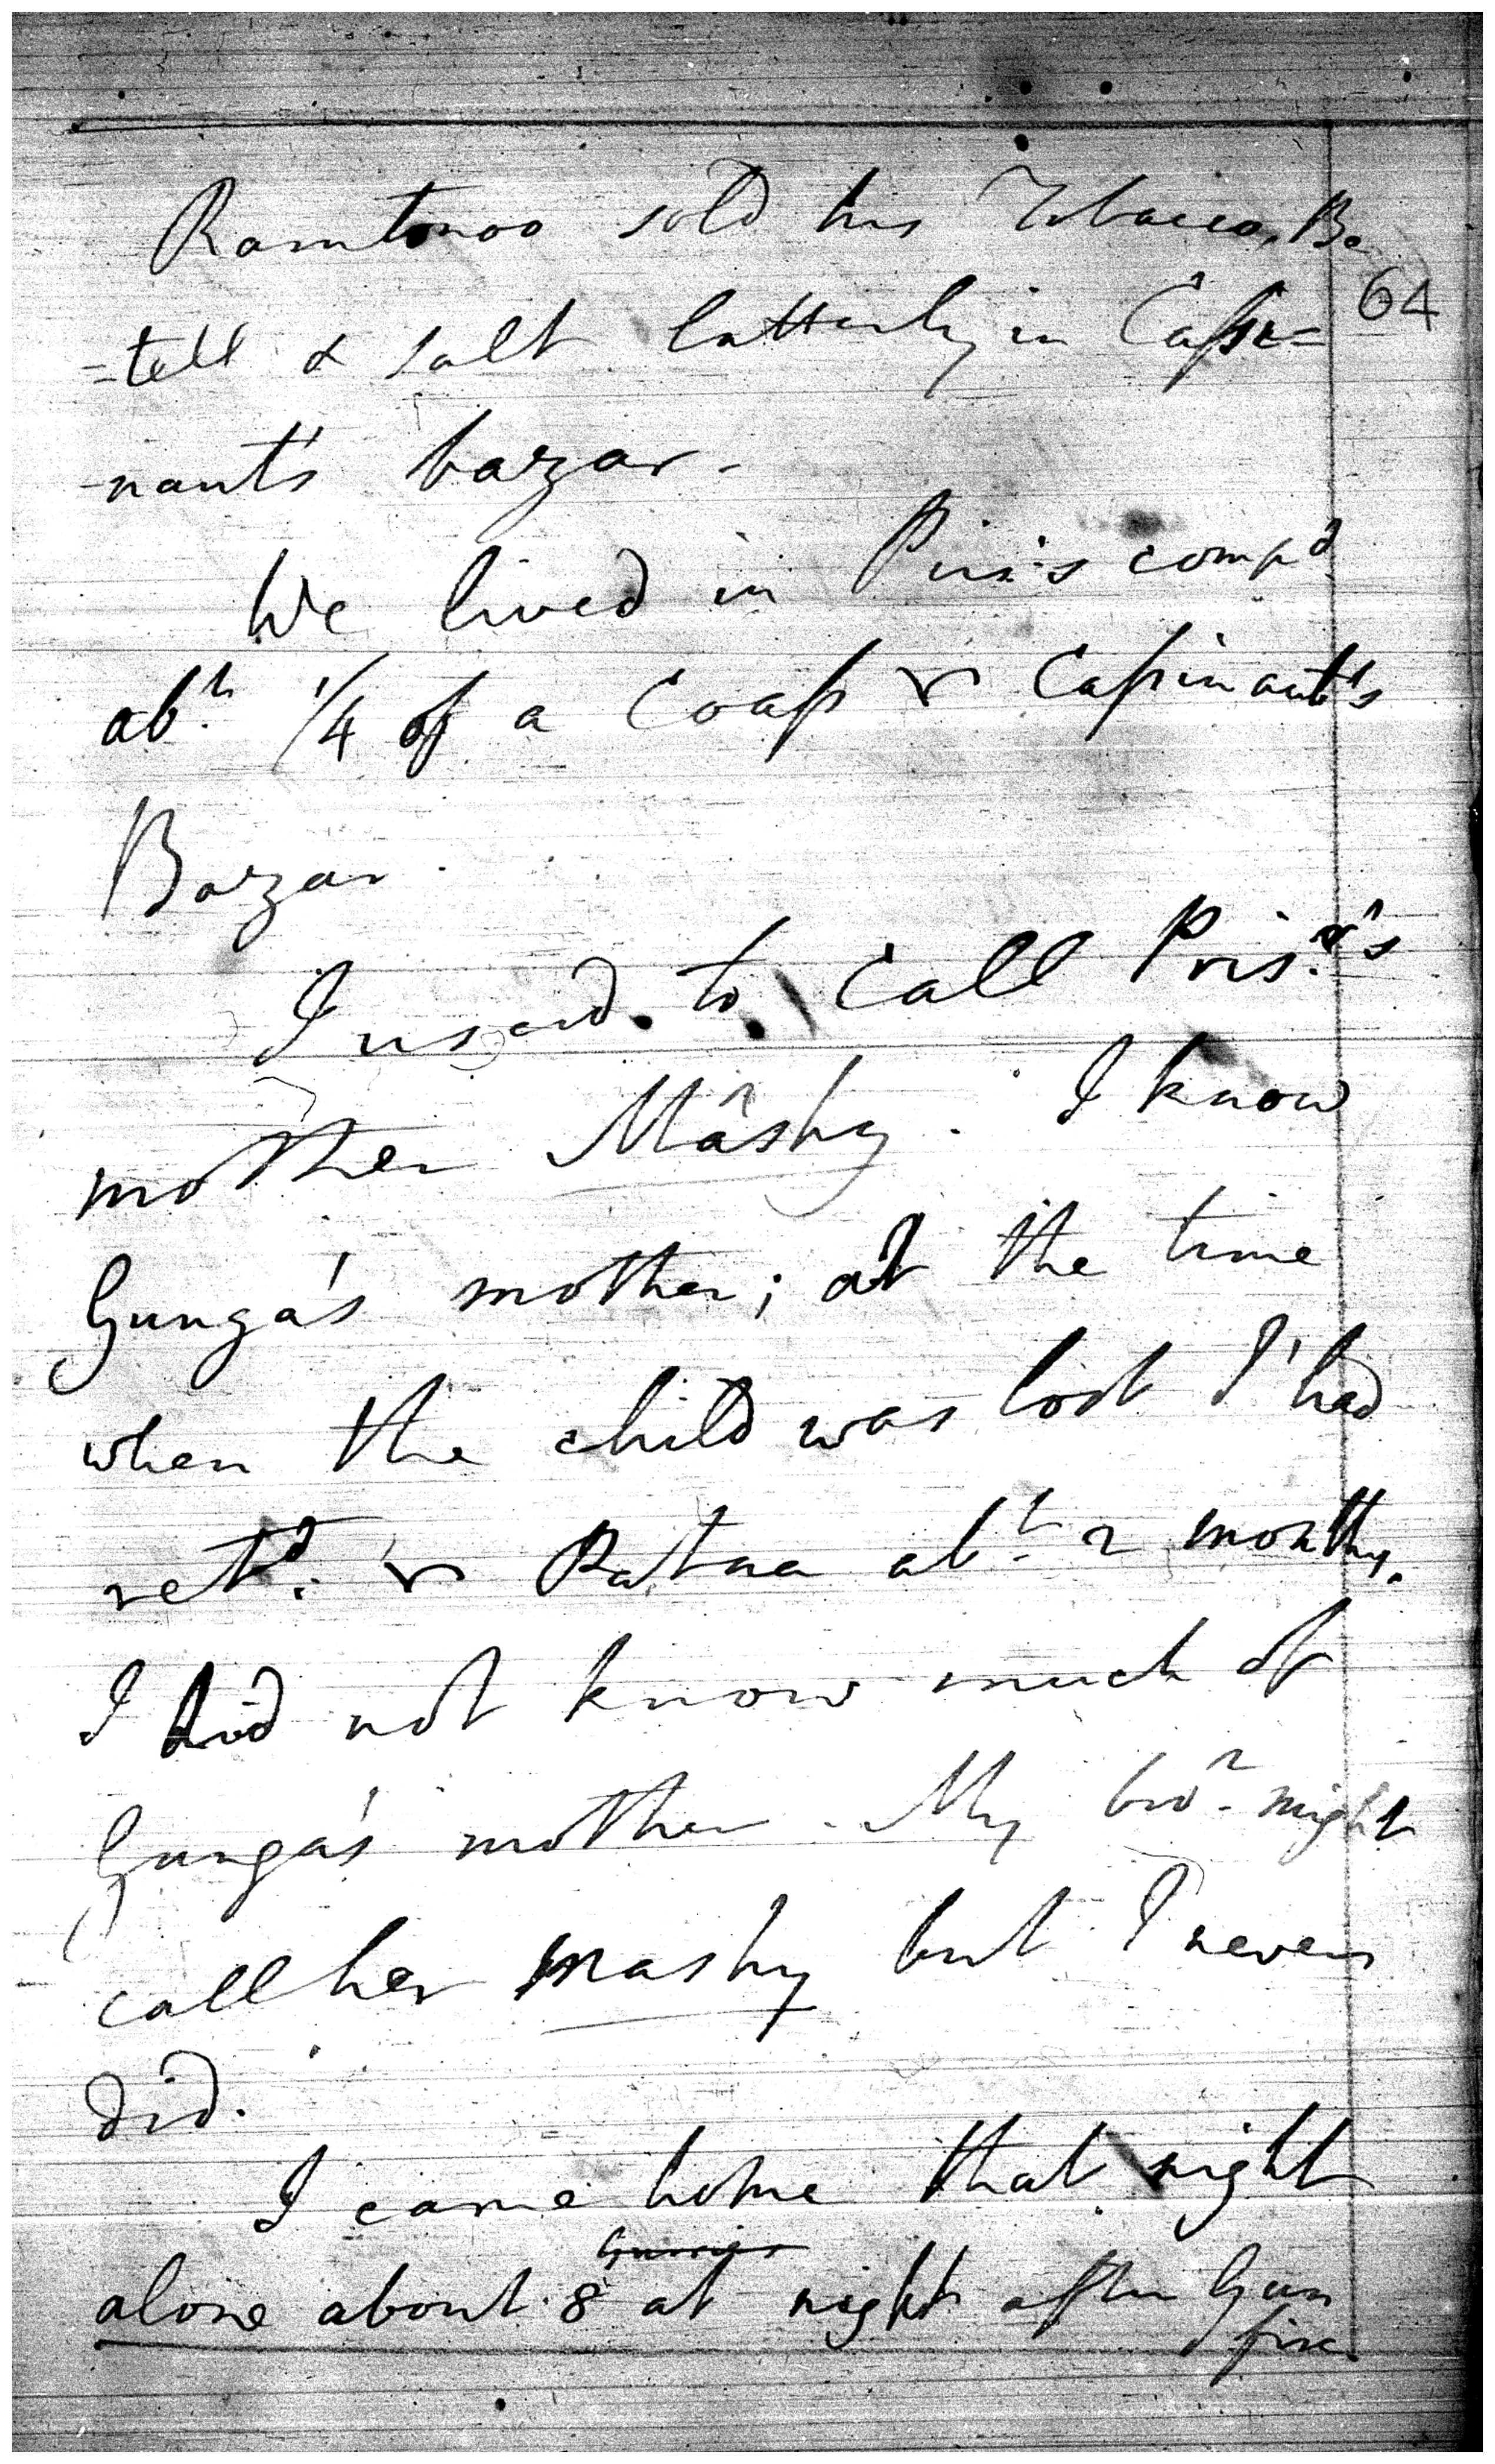 Ramtonoo sold his Tobacco, Be
64
=tell & salt latterly in Cassi=
-naut's bazar.
We lived in Piri's comp.d
ab.t 1/4 of a Coass fr Cassinaut's
Bazar.
I used to call Pris.r's
mother Mâshy. I know
Gunga's mother; at the time
when the child was lost I had
ret.d fr Patna ab.t 2 months.
I did not know much of
Gunga's mother. My bro.r might
call her mashy but I never
did.
I came home that night
alone about 8 at night after Gun
fire